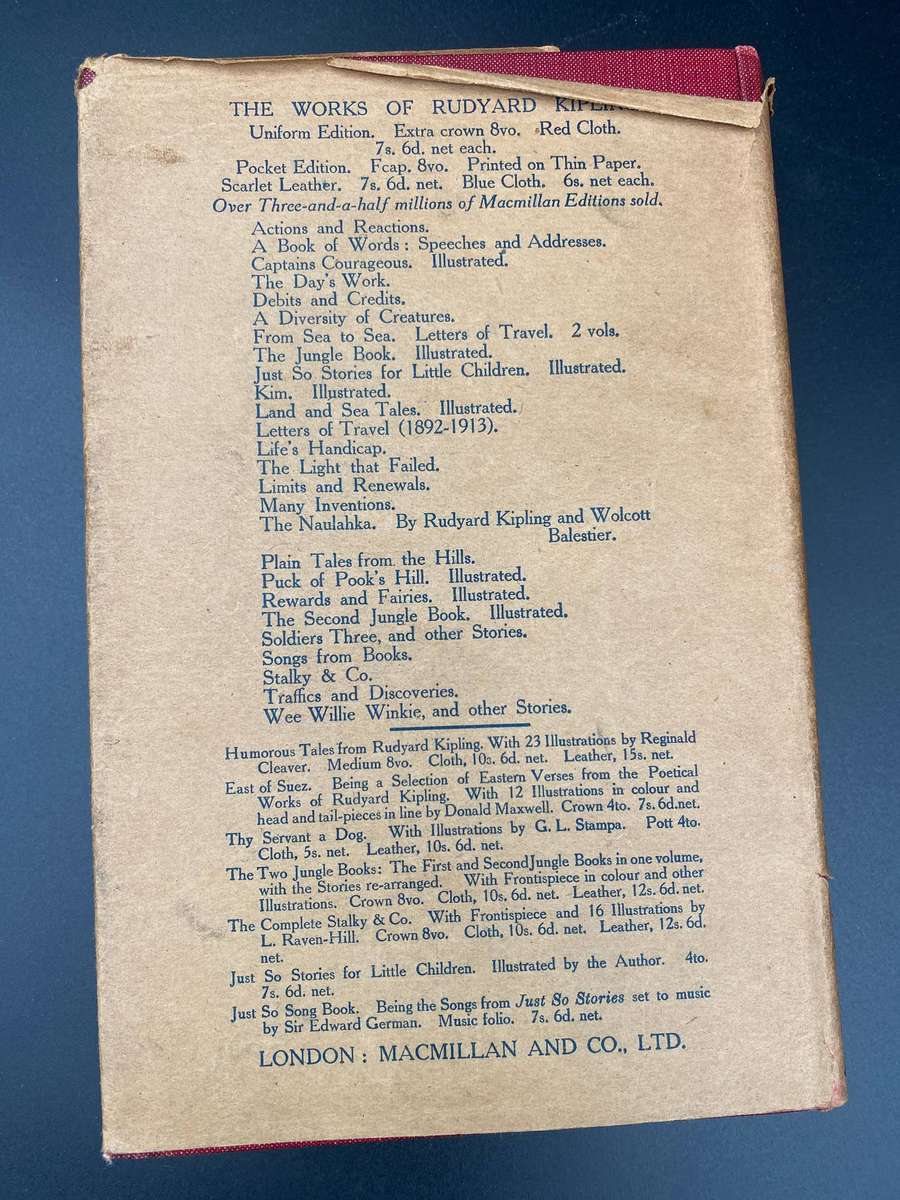 THE WORKS OF RUDYARD KIPLING
Uniform Edition. Extra crown 8vo. Red Cloth.
7s. 6d. net each.
Pocket Edition. Fcap. 8vo. Printed on Thin Paper.
Scarlet Leather. 7s. 6d. net. Blue Cloth. 6s. net each.
Over Three-and-a-half millions of Macmillan Editions sold.
Actions and Reactions.
A Book of Words: Speeches and Addresses.
Captains Courageous. Illustrated.
The Day's Work.
Debits and Credits.
A Diversity of Creatures.
From Sea to Sea. Letters of Travel. 2 vols.
The Jungle Book. Illustrated.
Just So Stories for Little Children. Illustrated.
Kim. Illustrated.
Land and Sea Tales. Illustrated.
Letters of Travel (1892-1913).
Life's Handicap.
The Light that Failed.
Limits and Renewals.
Many Inventions.
The Naulahka. By Rudyard Kipling and Wolcott
Balestier.
Plain Tales from the Hills.
Puck of Pook's Hill. Illustrated.
Rewards and Fairies. Illustrated.
The Second Jungle Book. Illustrated.
Soldiers Three, and other Stories.
Songs from Books.
Stalky & Co.
Traffics and Discoveries.
Wee Willie Winkie, and other Stories.
Humorous Tales from Rudyard Kipling. With 23 Illustrations by Reginald
Cleaver. Medium 8vo. Cloth, 10s. 6d. net. Leather, 15s. net.
East of Suez. Being a Selection of Eastern Verses from the Poetical
Works of Rudyard Kipling. With 12 Illustrations in colour and
head and tail-pieces in line by Donald Maxwell. Crown 4to. 7s. 6d. net.
Thy Servant a Dog. With Illustrations by G. L. Stampa. Pott 4to.
Cloth, 5s. net. Leather, 10s. 6d. net.
The Two Jungle Books: The First and Second Jungle Books in one volume,
with the Stories re-arranged. With Frontispiece in colour and other
Illustrations. Crown 8vo. Cloth, 10s. 6d. net. Leather, 12s. 6d. net.
The Complete Stalky & Co. With Frontispiece and 16 Illustrations by
L. Raven-Hill. Crown 8vo. Cloth, 10s. 6d. net. Leather, 12s. 6d.
net.
Just So Stories for Little Children. Illustrated by the Author. 4to.
7s. 6d. net.
Just So Song Book. Being the Songs from Just So Stories set to music
by Sir Edward German. Music folio. 7s. 6d. net.
LONDON: MACMILLAN AND CO., LTD.